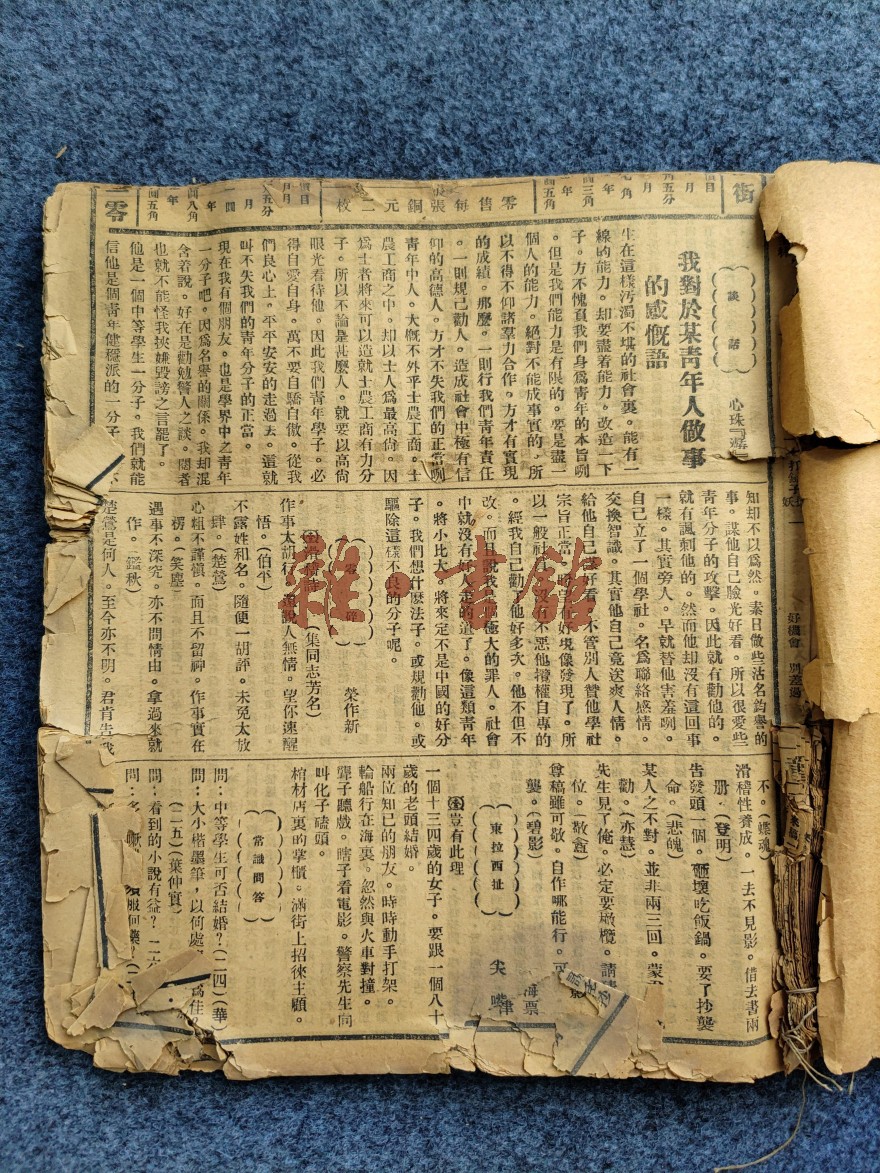 街
零售每張銅元二枚
零
談話
我對於某青年人做事
的感慨語
心珠
生在這樣汚濁不堪的社會裏。能有一
線的能力。却要盡着能力。改造一下
子。方不愧負我們身爲青年的本旨咧
。但是我們能力是有限的。要是盡一
個人的能力。絕對不能成事實的。所
以不得不仰諸羣力合作。方才有實現
的成績。那麼。一則行我們青年責任
。一則規己勸人。造成社會中極有信
仰的高德人。方才不失我們的正當咧
青年中人。大槪不外乎士農工商。士
農工商之中。却以士人爲最高尙。因
爲士者將來可以造就士農工商有力分
子。所以不論是甚麼人。就要以高尙
眼光看待他。因此我們青年學子。必
得自愛自身。萬不要自驕自傲。從我
們良心上。平平安安的走過去。這就
叫不失我們的青年分子的正當。
現在我有個朋友。也是學界中之青年
一分子吧。因爲名譽的關係。我却混
含着說。好在是勸勉警人之談。閱者
也就不能怪我挾嫌毀謗之言罷了。
他是一個中等學生一分子。我們就能
信他是個青年健穩派的一分子
知却不以爲然。素日做些沽名釣譽的
事。謀他自己臉光好看。所以很愛些
青年分子的攻擊。因此就有勸他的。
就有諷刺他的。然而他却沒有這回事
一樣。其實旁人。早就替他害羞咧。
自己立了一個學社。名爲聯絡感情。
交換智識。其實他自己竟送爽人情。
給他自己臉好看。不管別人贊他學社
宗旨正當。將自有好境像發現了。所
以一般社員。沒有不惡他攬權自專的
。經我自己勸了他好多次。他不但不
改。而且說我是個極大的罪人。社會
中就沒有好人走的道了。像這類青年
。將小比大。將來定不是中國的好分
子。我們想什麼法子。或規勸他。或
驅除這樣不良的分子呢。
榮作新
滑稽詩
(集同志芳名)
作事太胡行。
說人無情。望你速醒
悟。(伯平)
不露姓和名。隨便一胡評。未免太放
肆。(楚鶯)
心粗不謹愼。而且不留神。作事實在
(笑塵)
遇事不深究。亦不問情由。拿過來就
作。
楚鶯是何人。至今亦不明。君肯告我
不。(蝶魂)
滑稽性養成。一去不見影。借去書兩
册。(登明)
告發頭一個。砸壞吃飯鍋。要了抄襲
命。(悲魄)
某人之不對。並非兩三回。蒙
勸。(亦慧)
先生見了俺。必定要橄欖。請
位。(敬盦)
尊稿雖可敬。自作哪能行。可
襲。(碧影)
東拉西扯
尖嘴
豈有此理
一個十三四歲的女子。要跟一個八十
歲的老頭結婚。
兩位知已的朋友。時時動手打架。
輪船行在海裏。忽然與火車對撞。
聾子聽戲。瞎子看電影。警察先生向
叫化子磕頭。
棺材店裏的掌櫃。滿街上招徠主顧。
常識問答
問：中等學生可否結婚？(二四)(華)
問：大小楷墨筆，以何處
爲佳？
(二五)(葉仲實)
問：看到的小說有益？
問：多
服何藥？